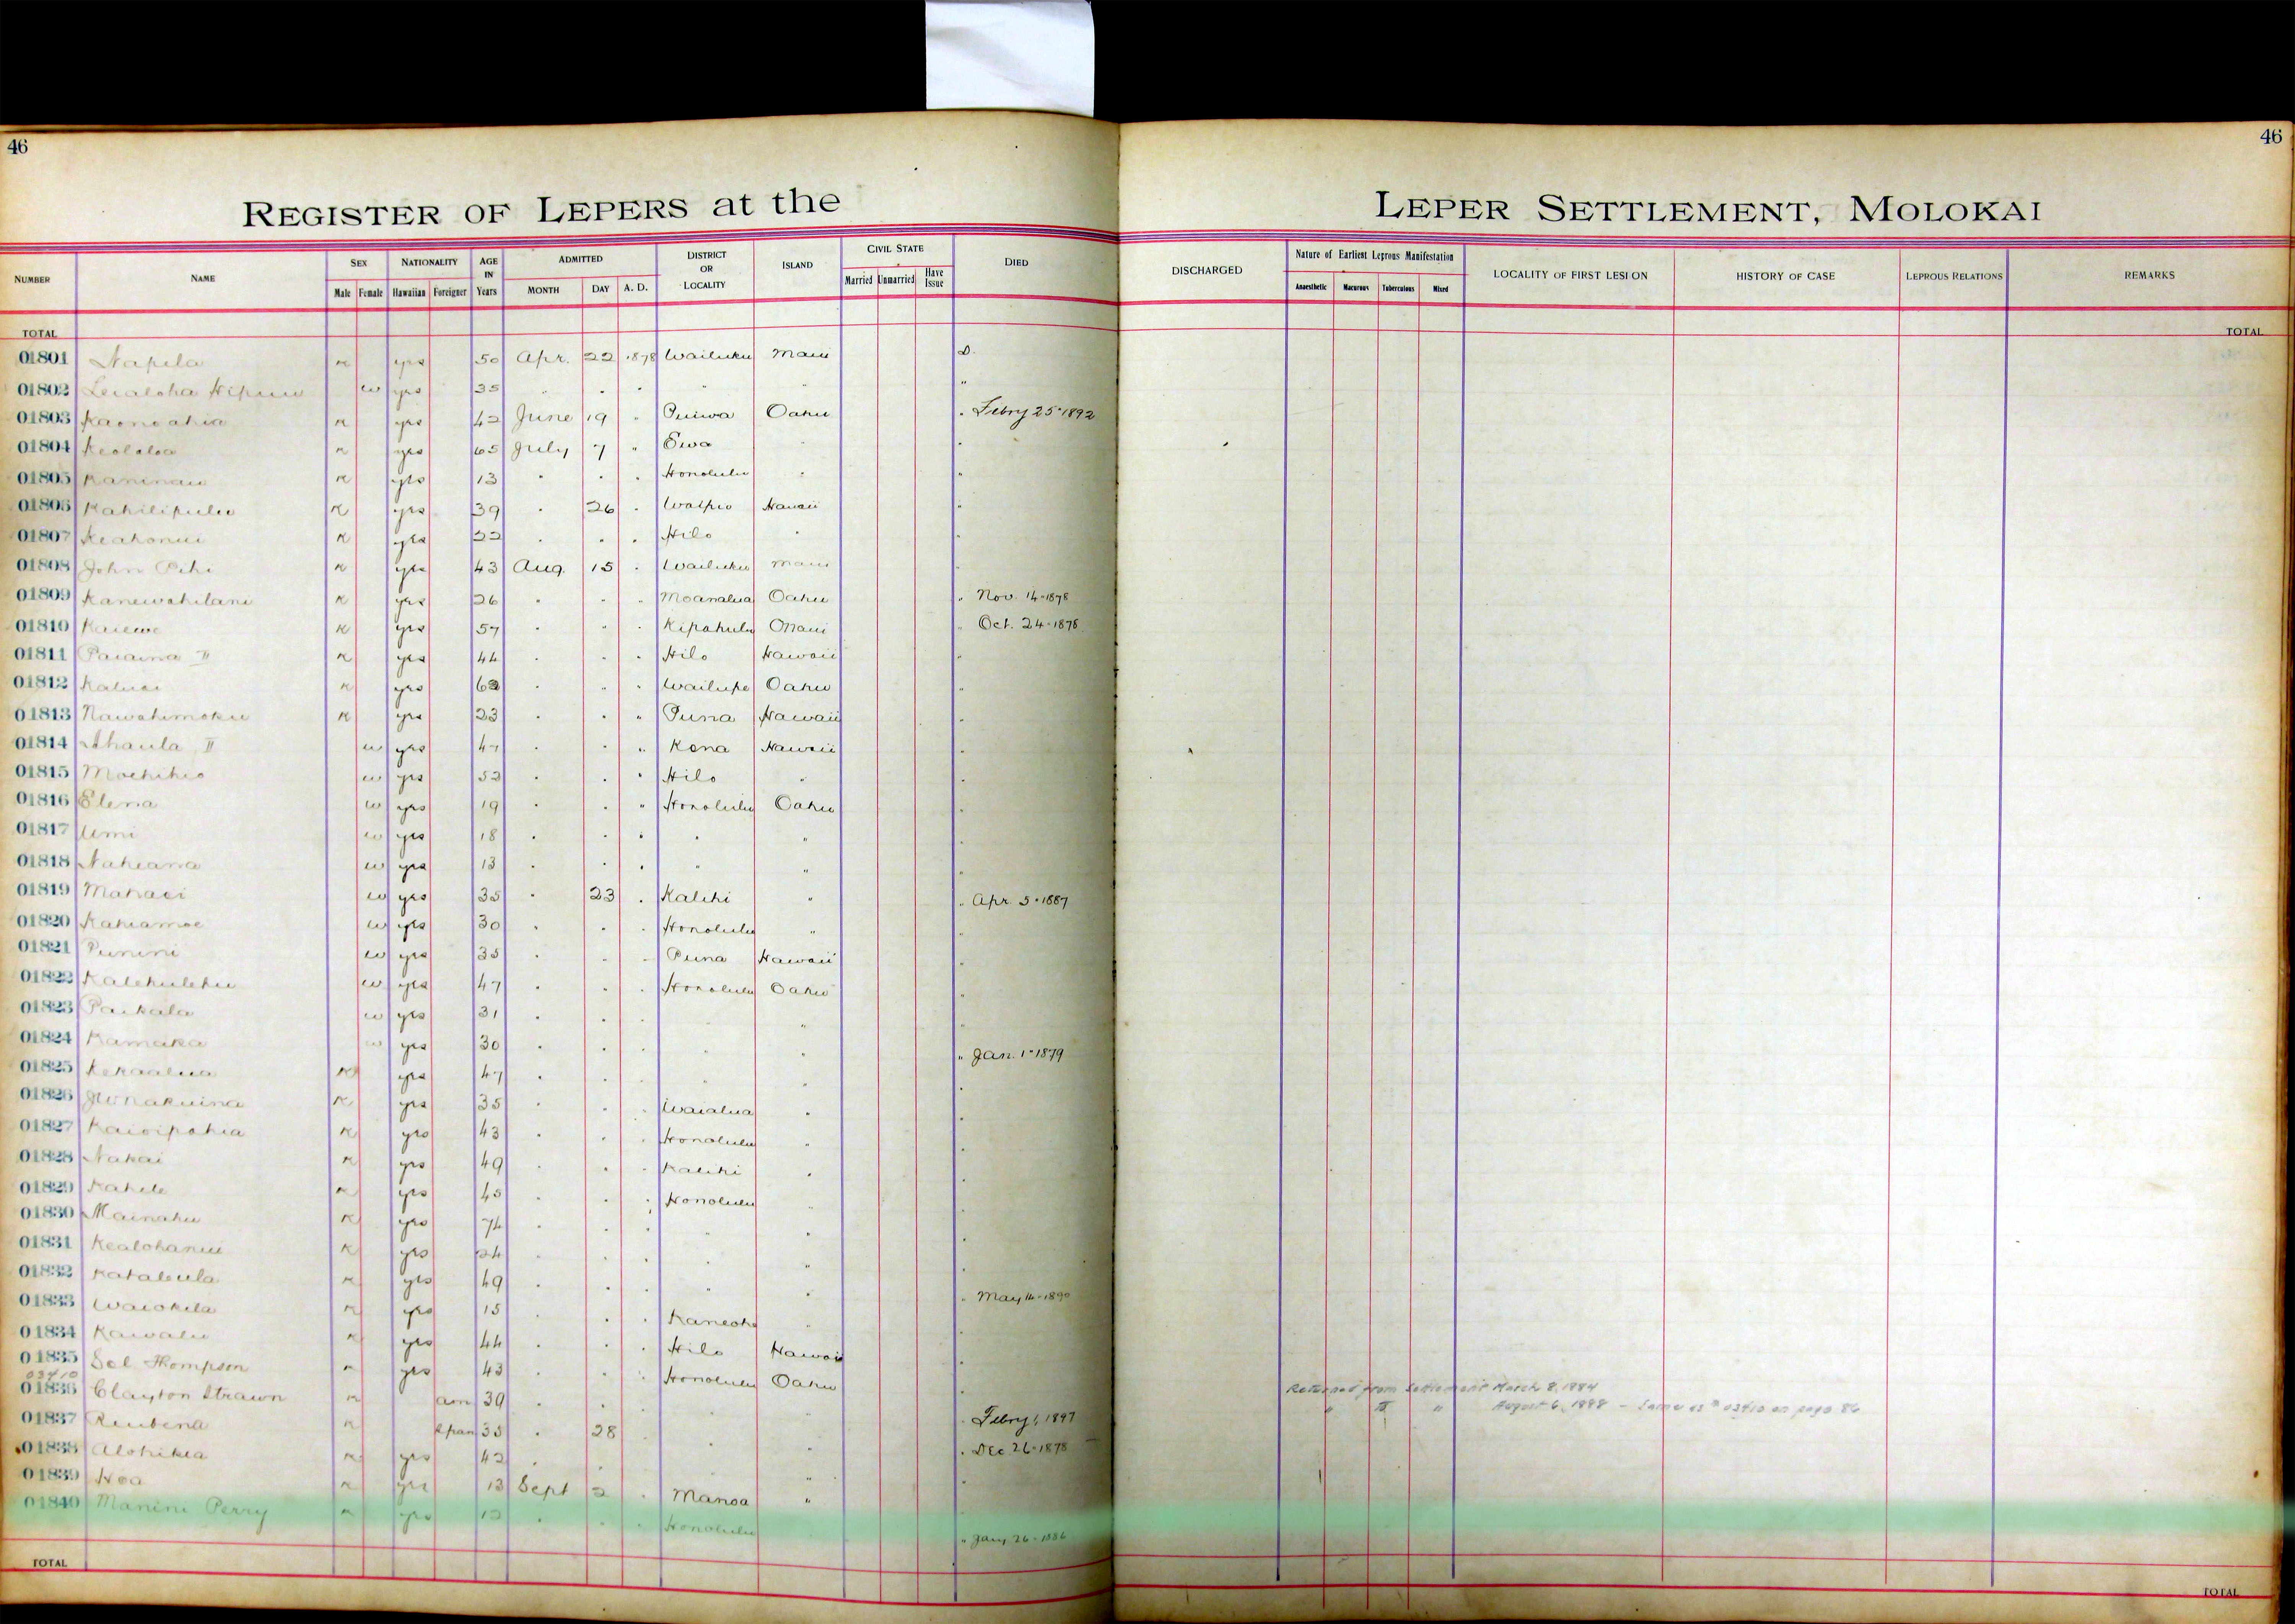 46
46
REGISTER OF LEPERS at the LEPER SETTLEMENT, MOLOKAI
NUMBER NAME SEX NATIONALITY AGE IN Years ADMITTED DISTRICT OR LOCALITY ISLAND CIVIL STATE DIED DISCHARGED Nature of Earliest Leprous Manifestation LOCALITY OF FIRST LESION HISTORY OF CASE LEPROUS RELATIONS REMARKS
Male Female Hawaiian Foreigner MONTH DAY A. D. Married Unmarried Have Issue Anaesthetic Macurous Tuberculous Mixed
TOTAL TOTAL
01801 Napela m yes 50 Apr. 22 1878 Wailuku Maui D.
01802 Lualoha w yes 35 " " " " " "
01803 Kaonoahia m yes 42 June 19 " Puiwa Oahu " Febry 25-1892
01804 Keololoa m yes 65 July 7 " Ewa " "
01805 Kaninau m yes 13 " " " Honolulu " "
01806 Kahilipulu m yes 39 " 26 " Waipio Hawaii "
01807 Keahonui m yes 22 " " " Hilo " "
01808 John m yes 43 Aug. 15 " Wailuku Maui "
01809 Kanewahilani m yes 26 " " " Moanalua Oahu " Nov. 14-1878
01810 Kaiewe m yes 57 " " " Kipahulu Maui " Oct. 24-1878
01811 Paiaina II m yes 44 " " " Hilo Hawaii "
01812 Kaluai m yes 62 " " " Wailupe Oahu "
01813 Nawahimoku m yes 23 " " " Puna Hawaii "
01814 Ahaula II w yes 47 " " " Kona Hawaii "
01815 w yes 52 " " " Hilo " "
01816 Elena w yes 19 " " " Honolulu Oahu "
01817 Umi w yes 18 " " " " " "
01818 Nahiana w yes 13 " " " " " "
01819 Mahaei w yes 35 " 23 " Kalihi " " Apr. 5-1887
01820 Kahiamoe w yes 30 " " " Honolulu " "
01821 Punini w yes 35 " " " Puna Hawaii "
01822 Kalehulehu w yes 47 " " " Honolulu Oahu "
01823 Paikala w yes 31 " " " " " "
01824 Kamaka w yes 30 " " " " " " Jan. 1-1879
01825 Kekaalua m yes 47 " " " " " "
01826 m yes 35 " " " Waialua " "
01827 Kaioipohia m yes 43 " " " Honolulu " "
01828 Nakai m yes 49 " " " Kalihi " "
01829 Kahele m yes 45 " " " Honolulu " "
01830 Mainahu m yes 74 " " " " " "
01831 Kealohanui m yes 24 " " " " " "
01832 Kataleula m yes 49 " " " " " " May 14-1890
01833 Waiokila m yes 15 " " " Kaneohe " "
01834 Kawalu m yes 44 " " " Hilo Hawaii "
01835 Sol Thompson m yes 43 " " " Honolulu Oahu "
03410
01836 Clayton Strawn m am 39 " " " " " " Febry 1, 1897 Returned from Settlement March 8, 1884
" " " August 6, 1888 - Same as # 03410 on page 86
01837 Reubena m Span 35 " 28 " " " " Dec 26-1878
01838 Alohikea m yes 42 " " " " " "
01839 Hoa m yes 13 Sept 2 " Manoa " "
01840 Manini Perry m yes 12 " " " Honolulu " " Jany 26-1886
TOTAL TOTAL